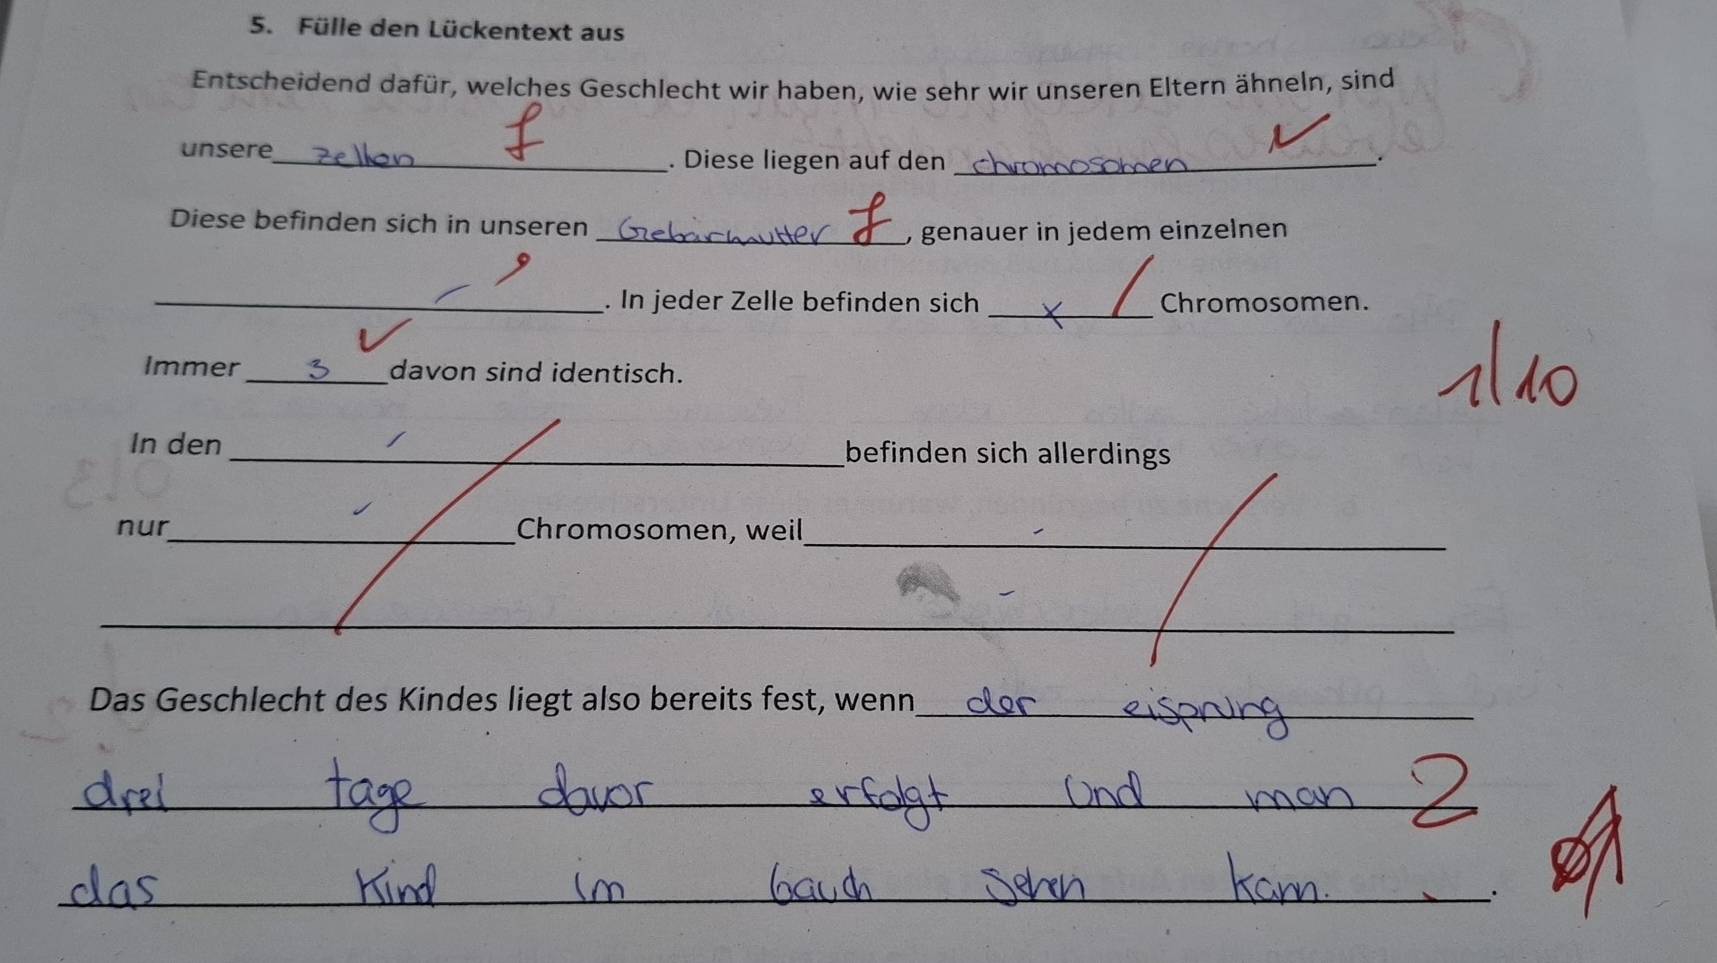 5. Fülle den Lückentext aus
Entscheidend dafür, welches Geschlecht wir haben, wie sehr wir unseren Eltern ähneln, sind
unsere zellen f. Diese liegen auf den chromosomen ✓.
Diese befinden sich in unseren Gebärmutter f, genauer in jedem einzelnen
. In jeder Zelle befinden sich x Chromosomen.
Immer 3 davon sind identisch.
1/10
In den befinden sich allerdings
nur Chromosomen, weil
Das Geschlecht des Kindes liegt also bereits fest, wenn der eisprung
drei tage davor erfolgt und man
das Kind im bauch sehen kann.